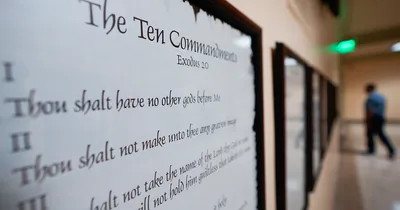 The Ten Commandments
Exodus 20
I
Thou shalt have no other gods before Me.
II
Thou shalt not make unto thee any graven image
III
Thou shalt not take the name of the Lord thy God
will not hold him guiltless